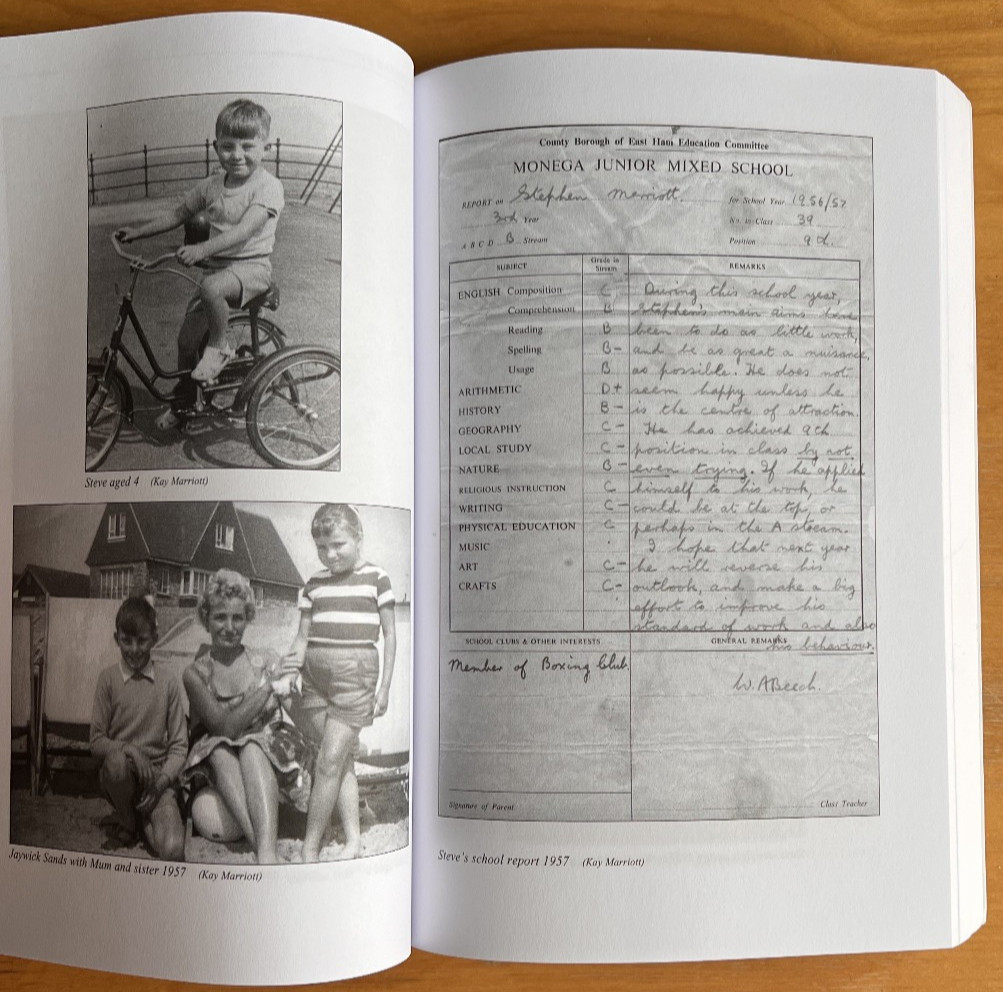 Steve aged 4 (Kay Marriott)
Jaywick Sands with Mum and sister 1957 (Kay Marriott)
County Borough of East Ham Education Committee
MONEGA JUNIOR MIXED SCHOOL
REPORT on Stephen Marriott. for School Year 1956/57
3rd Year No. in Class 39
A B C D B Stream Position 9th.
SUBJECT Grade in Stream REMARKS
ENGLISH Composition C During this school year,
Comprehension B Stephen's main aims have
Reading B been to do as little work,
Spelling B- and be as great a nuisance,
Usage B as possible. He does not
ARITHMETIC D+ seem happy unless he
HISTORY B- is the centre of attraction.
GEOGRAPHY C- He has achieved 9th
LOCAL STUDY C- position in class by not
NATURE B- even trying. If he applied
RELIGIOUS INSTRUCTION C himself to his work, he
WRITING C- could be at the top, or
PHYSICAL EDUCATION C perhaps in the A stream.
MUSIC I hope that next year
ART C- he will reverse his
CRAFTS C- outlook, and make a big
effort to improve his
standard of work and also
his behaviour.
SCHOOL CLUBS & OTHER INTERESTS GENERAL REMARKS
Member of Boxing Club.
W. A Beech.
Signature of Parent Class Teacher
Steve's school report 1957 (Kay Marriott)